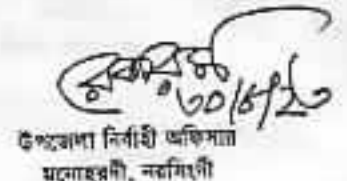 ৩০/৮/২৩
উপজেলা নির্বাহী অফিসার
মনোহরদী, নরসিংদী